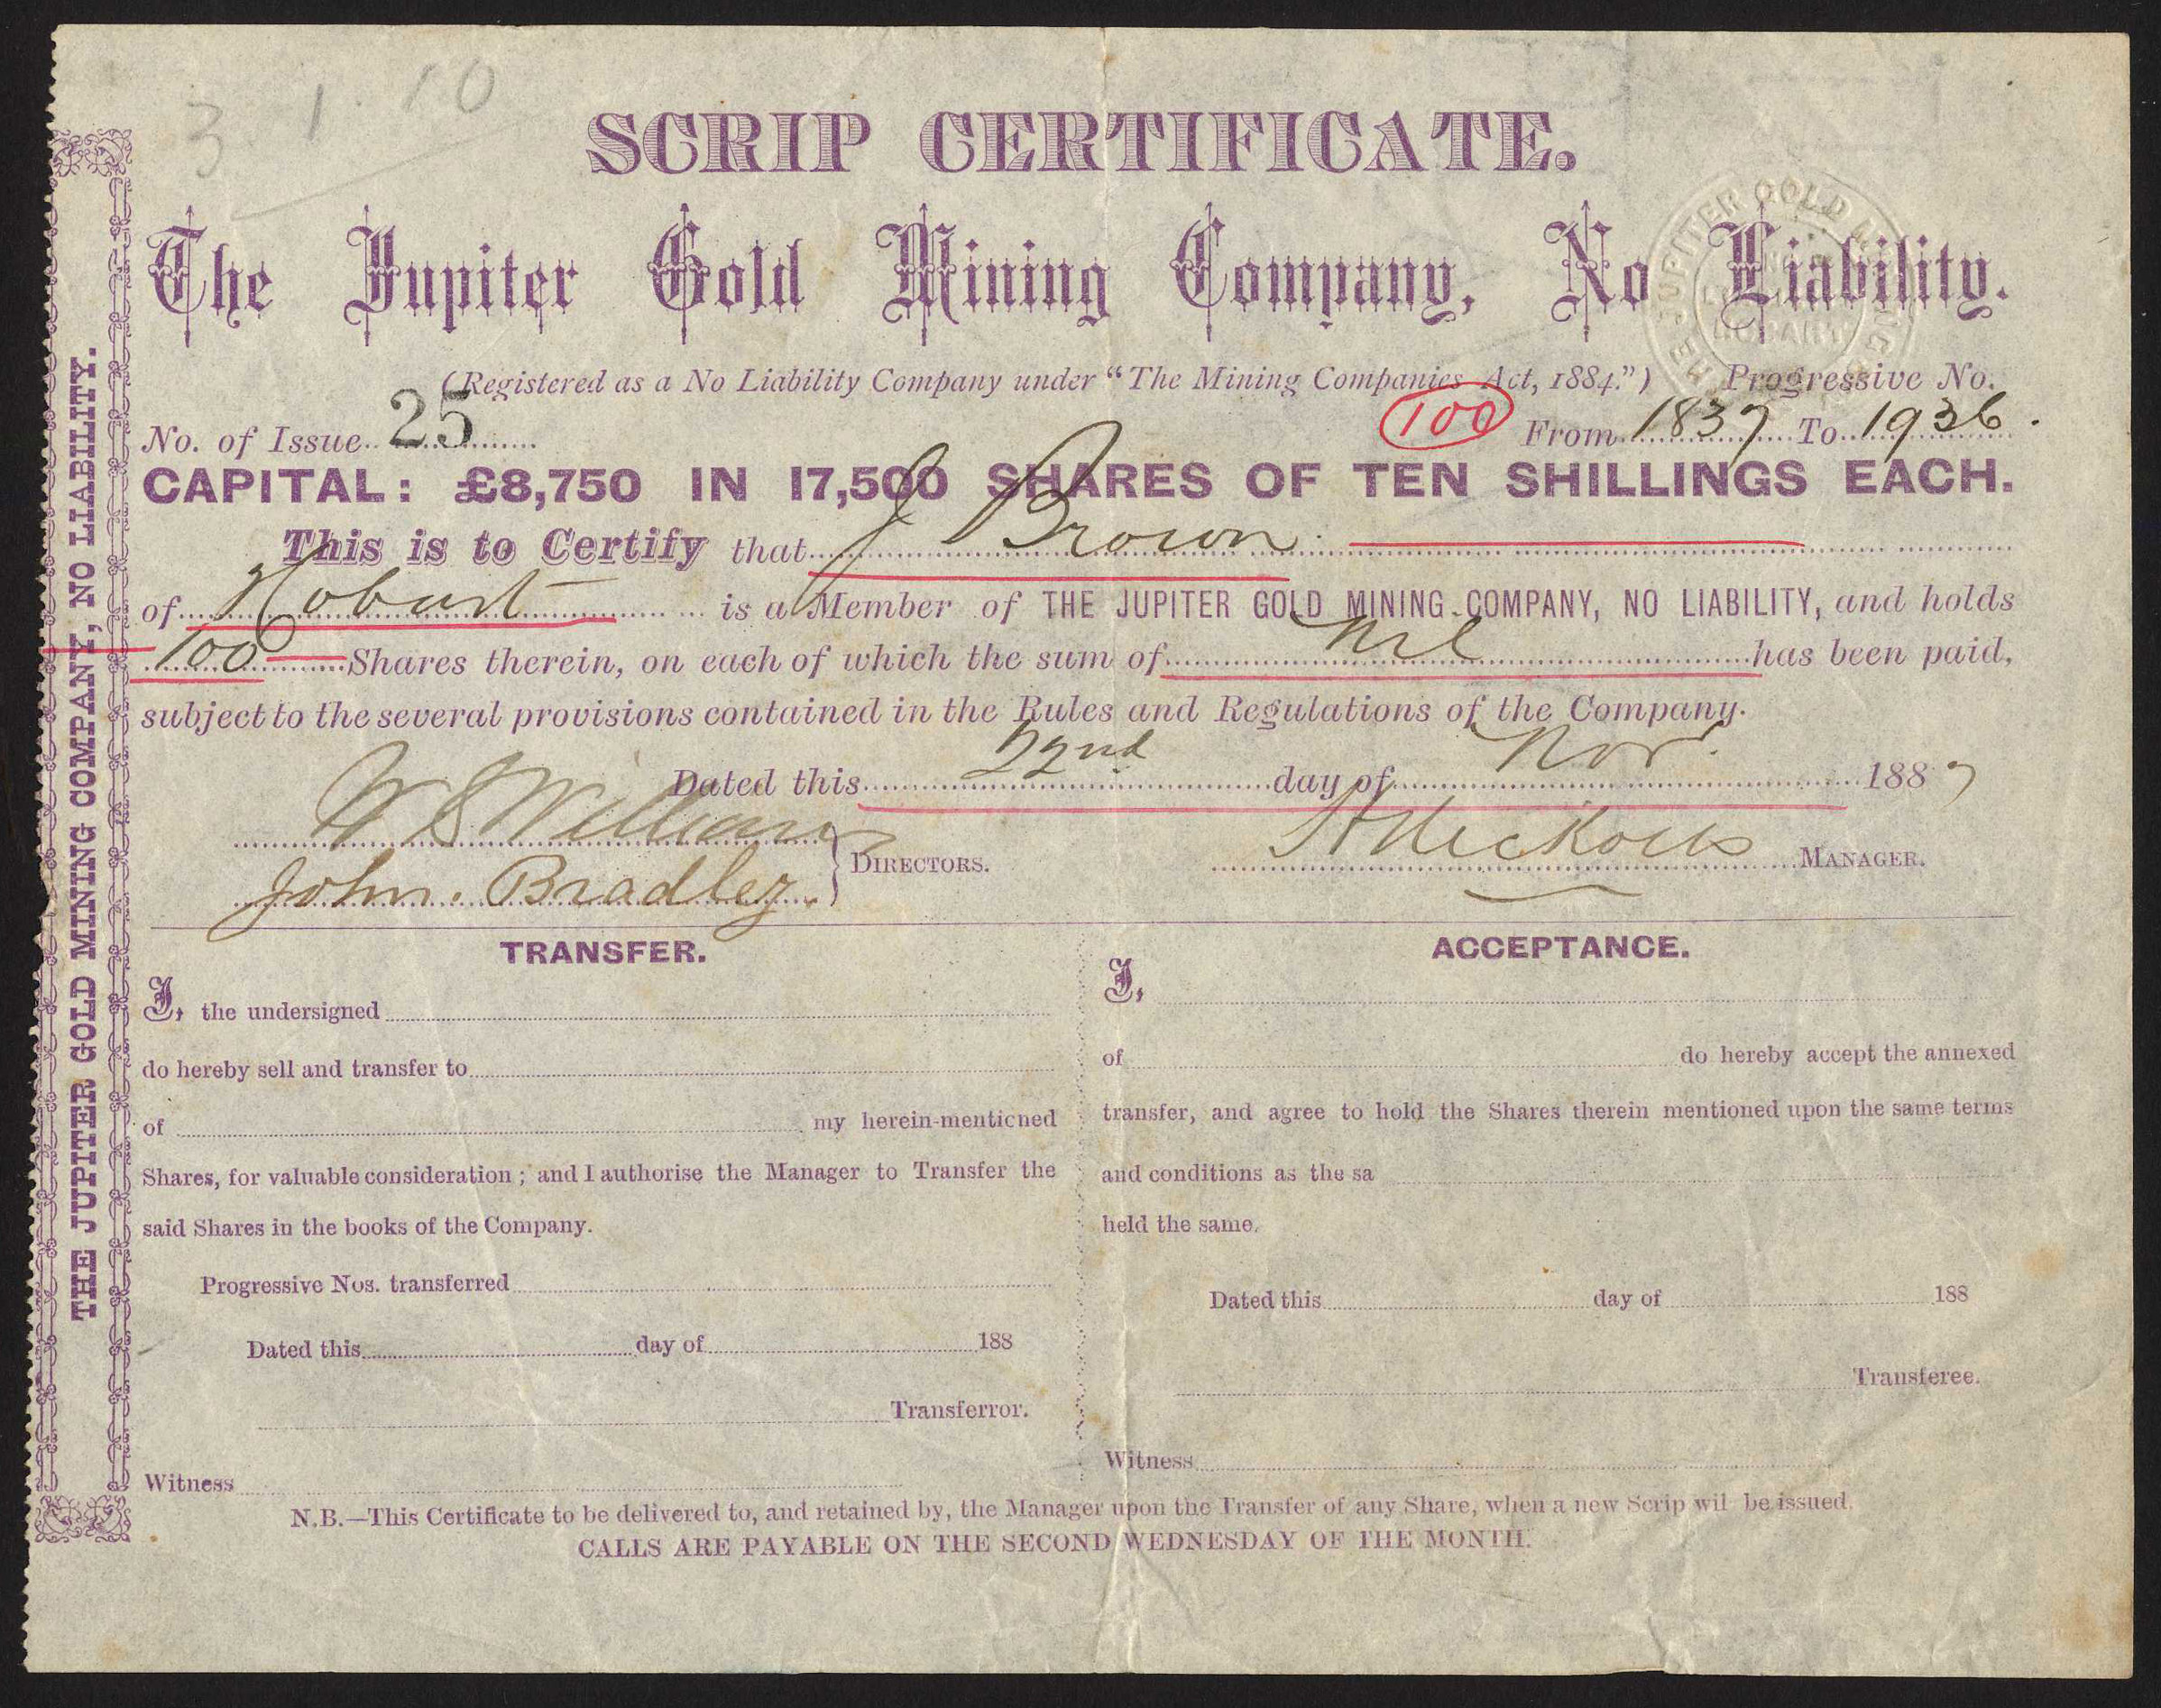 3 . 1 . 10
SCRIP CERTIFICATE.
The Jupiter Gold Mining Company, No Liability.
THE JUPITER GOLD
HOBART
(Registered as a No Liability Company under “The Mining Companies Act, 1884.”) Progressive No.
No. of Issue 25 100 From 1837 To 1936.
CAPITAL: £8,750 IN 17,500 SHARES OF TEN SHILLINGS EACH.
This is to Certify that J Brown
of Hobart is a Member of THE JUPITER GOLD MINING COMPANY, NO LIABILITY, and holds
100 Shares therein, on each of which the sum of Nil has been paid,
subject to the several provisions contained in the Rules and Regulations of the Company.
Dated this 22nd day of Nov. 1887
W S Williams
John Bradley
DIRECTORS.
MANAGER.
THE JUPITER GOLD MINING COMPANY, NO LIABILITY.
TRANSFER.
I, the undersigned
do hereby sell and transfer to
of my herein-mentioned
Shares, for valuable consideration; and I authorise the Manager to Transfer the
said Shares in the books of the Company.
Progressive Nos. transferred
Dated this day of 188
Transferror.
Witness
ACCEPTANCE.
I,
of do hereby accept the annexed
transfer, and agree to hold the Shares therein mentioned upon the same terms
and conditions as the sa
held the same.
Dated this day of 188
Transferee.
Witness
N.B.—This Certificate to be delivered to, and retained by, the Manager upon the Transfer of any Share, when a new Scrip wil be issued.
CALLS ARE PAYABLE ON THE SECOND WEDNESDAY OF THE MONTH.